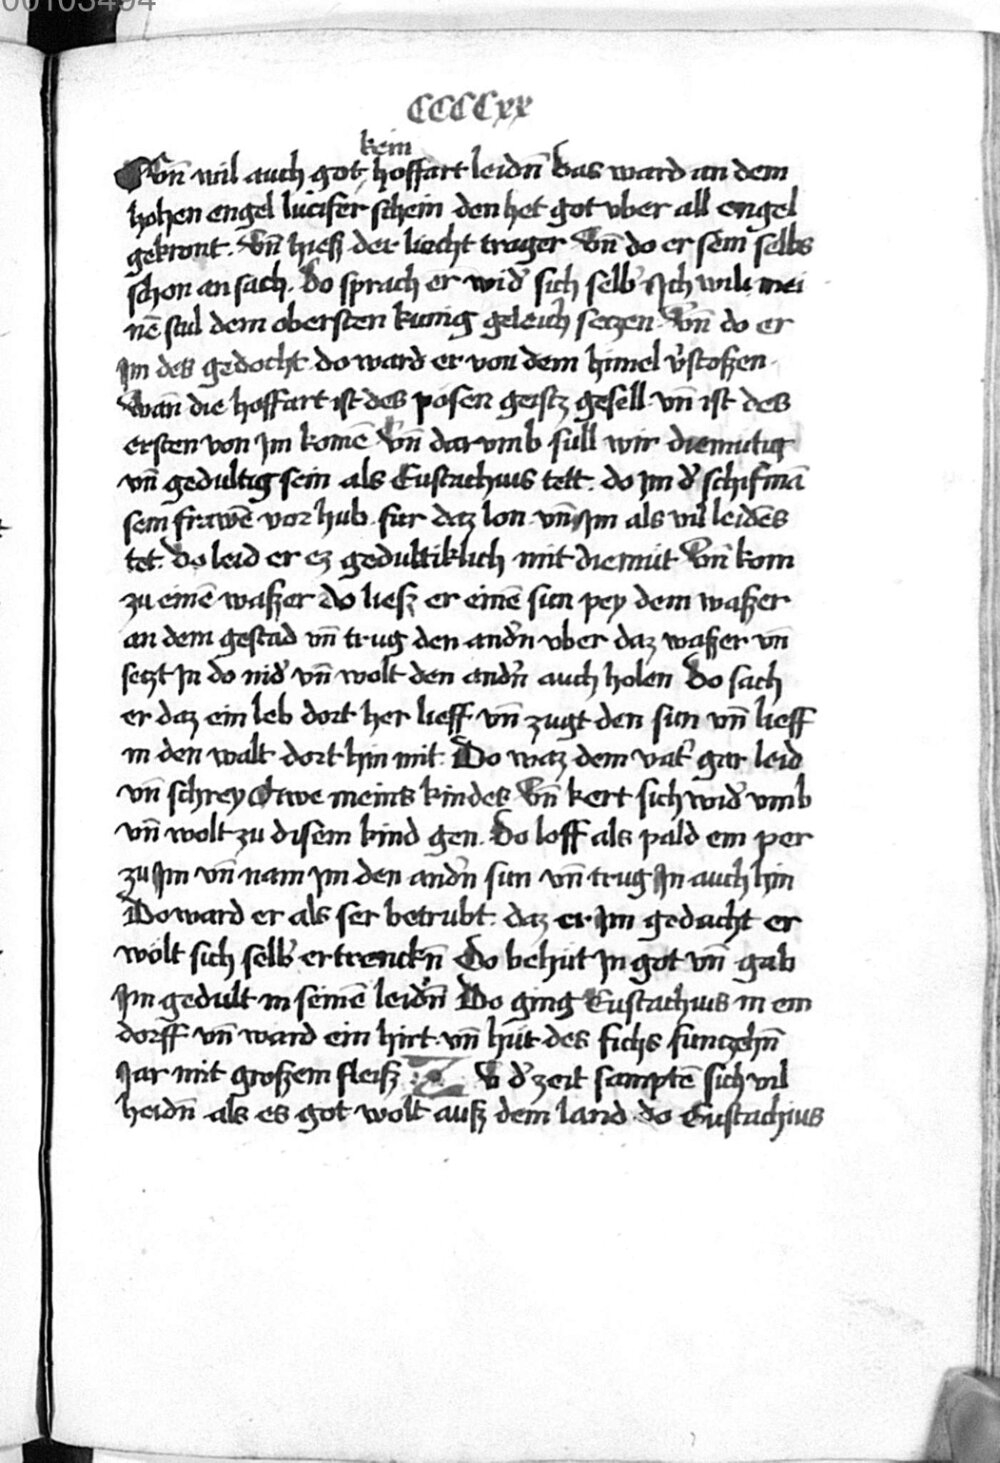 00103494
CCCCxx
kein
Vn̄ wil auch got hoffart leidn̄ Das ward an dem
hohen engel lucifer schein den het got vber all engel
gekront. Vn̄ hiesz der liecht trager Vn̄ do er sein selbs
schon an sach. Do sprach er wid' sich selb' Ich will mei
nē stul dem obersten kunig geleich setzen. Vn̄ do er
Im des gedocht do ward er von dem himel v'stoszen.
Wan̄ die hoffart ist des posen geistz gesell vn̄ ist des
ersten von Im komē Vn̄ dar vmb sull wir diemutig
vn̄ gedultig sein als Eustachius tett. do Im d' schifmā
sein frawē vor hub fur daz lon vn̄ Im als vil leides
tet. Do leid er ez gedultiklich mit diemut Vn̄ kom
zu einē waszer do liesz er einē sun pey dem waszer
an dem gestad vn̄ trug den and'n vber daz waszer vn̄
setzt In do nid' vn̄ wolt den and'n auch holen Do sach
er daz ein leb dort her lieff vn̄ zugt den sun vn̄ lieff
in den walt dort hin mit. Do waz dem vat' gar leid
vn̄ schrey Owe meins kindes Vn̄ kert sich wid' vmb
vn̄ wolt zu disem kind gen. Do loff als pald ein per
zu Im vn̄ nam Im den and'n sun vn̄ trug In auch hin
Do ward er als ser betrubt. daz er Im gedacht er
wolt sich selb' ertrenckn̄ Do behut In got vn̄ gab
Im gedult in seinē leidn̄ Do ging Eustachius in ein
dorff vn̄ ward ein hirt vn̄ hut des fichs funczehn̄
Iar mit groszem fleisz d' zeit samptē sich vil
heidn̄ als es got wolt ausz dem land do Eustachius